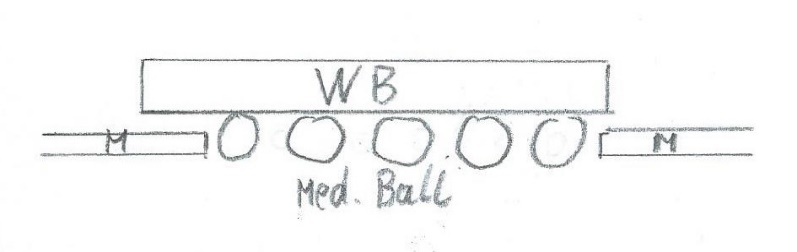 WB
M M
Med. Ball